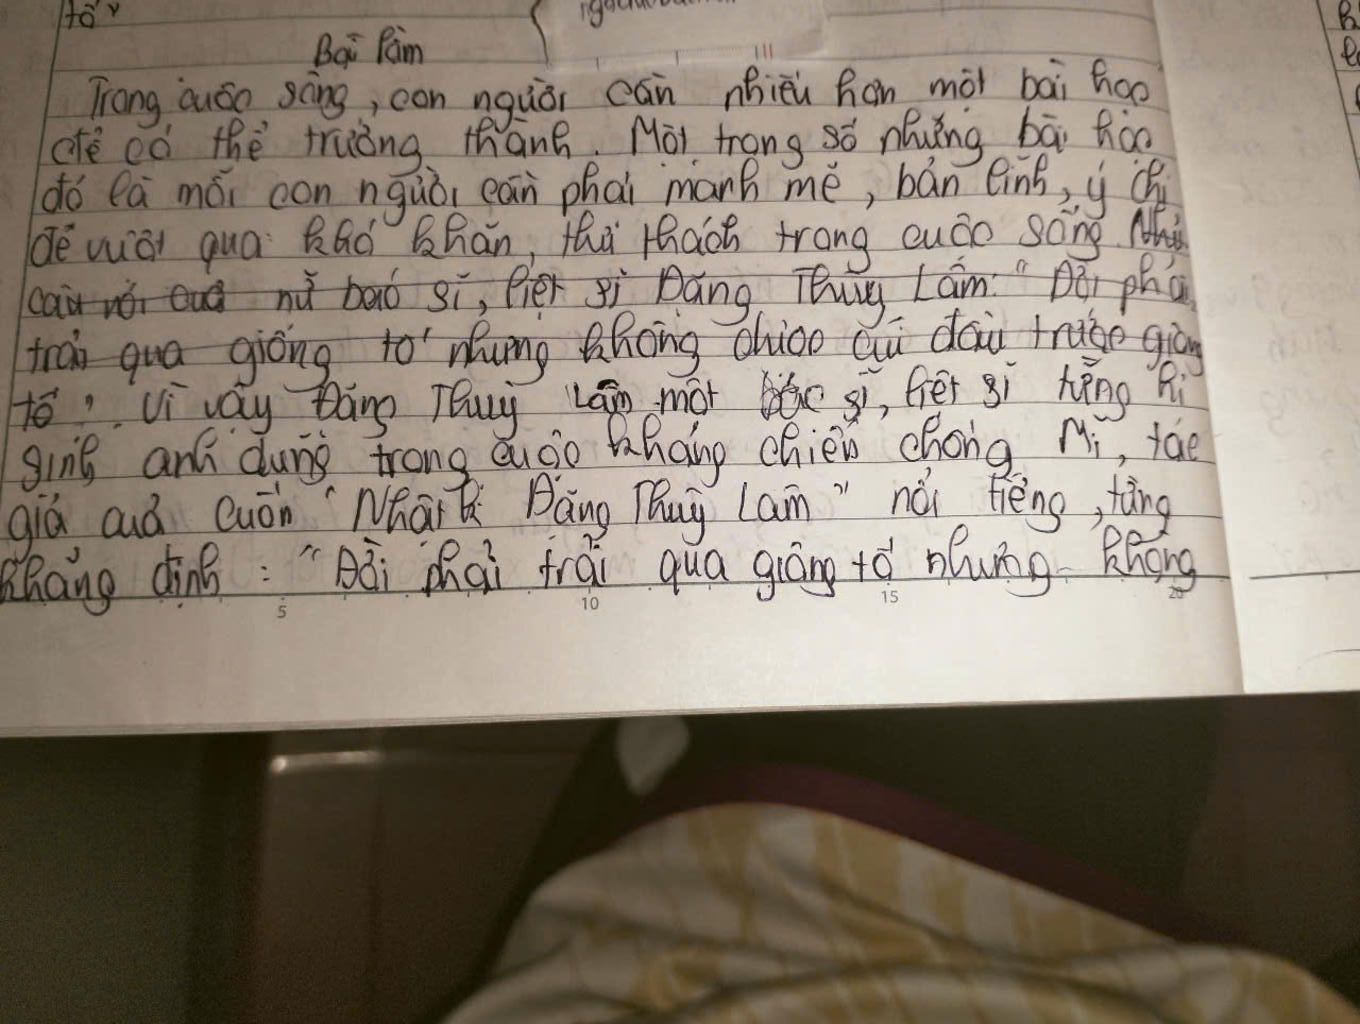 tố"
Bài làm
Trong cuộc sống, con người cần nhiều hơn một bài học
để có thể trưởng thành. Một trong số những bài học
đó là mỗi con người cần phải mạnh mẽ, bản lĩnh, ý chí
để vượt qua khó khăn, thử thách trong cuộc sống. Như
câu nói của nữ bác sĩ, liệt sĩ Đặng Thùy Lâm: "Đời phải
trải qua giông tố nhưng không được cúi đầu trước giông
tố". Vì vậy Đặng Thuỳ Lâm một bác sĩ, liệt sĩ từng hi
sinh anh dũng trong cuộc kháng chiến chống Mĩ, tác
giả của cuốn "Nhật kí Đặng Thuỳ Lâm" nổi tiếng, từng
khẳng định: "Đời phải trải qua giông tố nhưng không
5 10 15 20